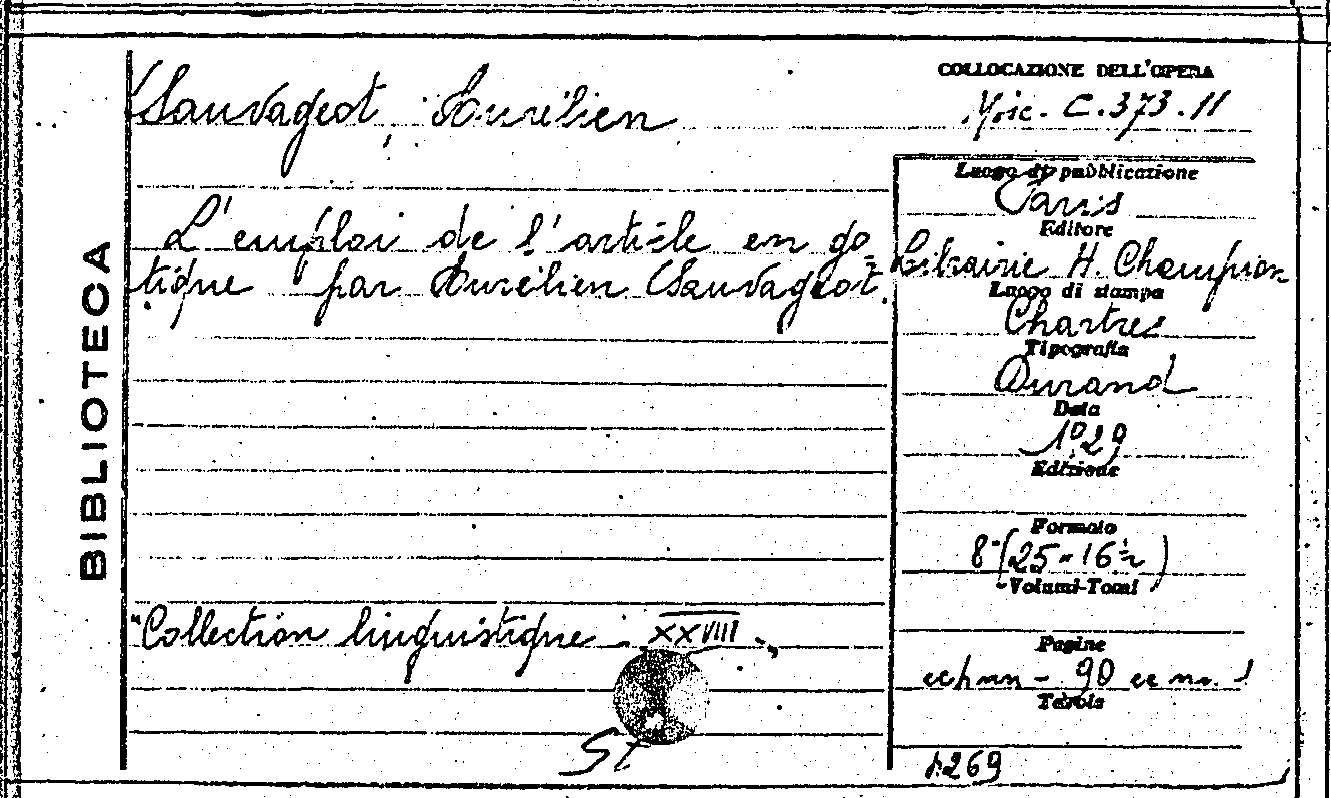 BIBLIOTECA
Sauvageot, Aurélien
L'emploi de l'article en go=
tique par Aurélien Sauvageot.
"Collection linguistique XXVIII",
St
COLLOCAZIONE DELL'OPERA
C.373.11
Luogo di pubblicazione
Paris
Editore
Librairie H. Champion
Luogo di stampa
Chartres
Tipografia
Durand
Data
1929
Edizione
Formato
8° (25 × 16 ½)
Volumi-Tomi
Pagine
90
Tavole
269